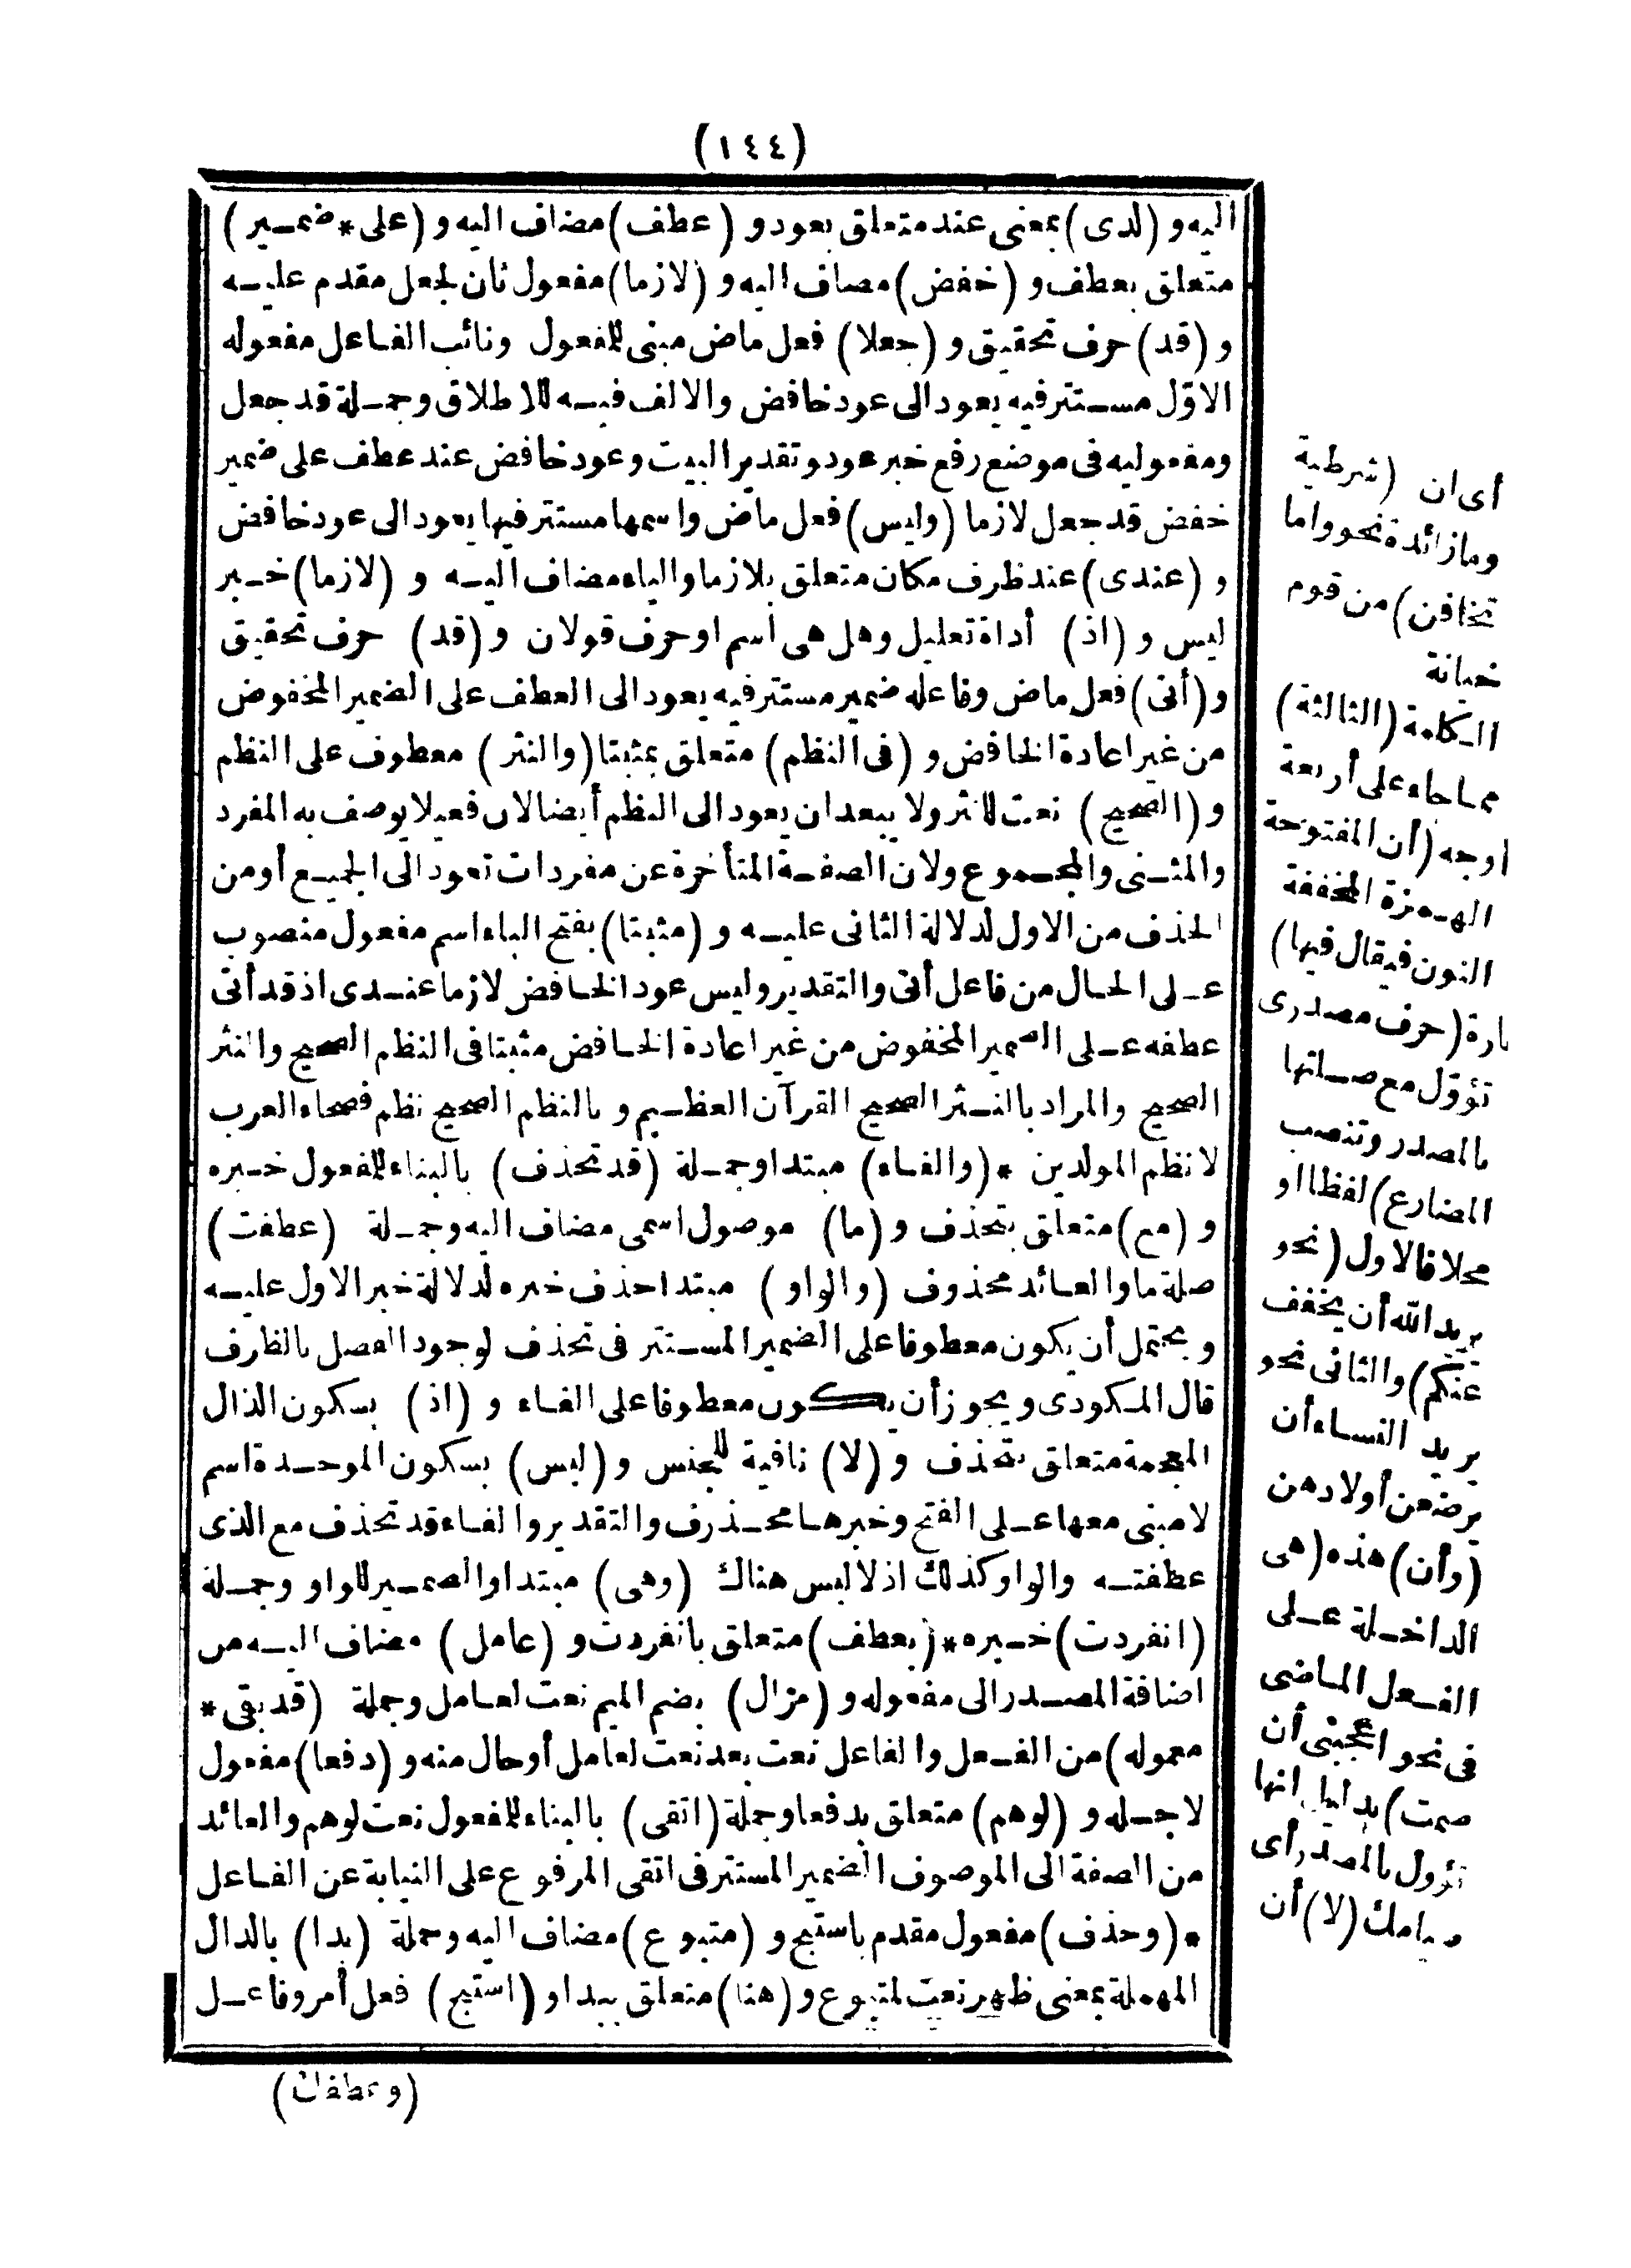 (١٤٤)
اليه و (لدى) بمعنى عند متعلق بعود و (عطف) مضاف اليه و (على * ضمير)
متعلق بعطف و (خفض) مضاف اليه و (لازما) مفعول ثان لجعل مقدم عليه
و (قد) حرف تحقيق و (جعلا) فعل ماض مبنى للمفعول ونائب الفاعل مفعوله
الاوّل مستتر فيه يعود الى عود خافض والالف فيه للاطلاق وجملة قد جعل
ومفعوليه فى موضع رفع خبر عود وتقدير البيت وعود خافض عند عطف على ضمير
خفض قد جعل لازما (وليس) فعل ماض واسمها مستتر فيها يعود الى عود خافض
و (عندى) عند ظرف مكان متعلق بلازما والياء مضاف اليه و (لازما) خبر
ليس و (اذ) أداة تعليل وهل هى اسم او حرف قولان و (قد) حرف تحقيق
و (أتى) فعل ماض وفاعله ضمير مستتر فيه يعود الى العطف على الضمير المخفوض
من غير اعادة الخافض و (فى النظم) متعلق بمثبتا (والنثر) معطوف على النظم
و (الصحيح) نعت للنثر ولا يبعد ان يعود الى النظم أيضا لان فعيلا يوصف به المفرد
والمثنى والمجموع ولان الصفة المتأخرة عن مفردات تعود الى الجميع أو من
الحذف من الاول لدلالة الثانى عليه و (مثبتا) بفتح الباء اسم مفعول منصوب
على الحال من فاعل أتى والتقدير وليس عود الخافض لازما عندى اذ قد أتى
عطفه على الضمير المخفوض من غير اعادة الخافض مثبتا فى النظم الصحيح والنثر
الصحيح والمراد بالنثر الصحيح القرآن العظيم و بالنظم الصحيح نظم فصحاء العرب
لا نظم المولدين * (والفاء) مبتدا وجملة (قد تحذف) بالبناء للمفعول خبره
و (مع) متعلق بتحذف و (ما) موصول اسمى مضاف اليه وجملة (عطفت)
صلة ما والعائد محذوف (والواو) مبتدا حذف خبره لدلالة خبر الاول عليه
و يحتمل أن يكون معطوفا على الضمير المستتر فى تحذف لوجود الفصل بالظرف
قال المكودى ويجوز أن يكون معطوفا على الفاء و (اذ) بسكون الذال
المعجمة متعلق بتحذف و (لا) نافية للجنس و (لبس) بسكون الموحدة اسم
لا مبنى معها على الفتح وخبرها محذوف والتقدير والفاء قد تحذف مع الذى
عطفته والواو كذلك اذ لا لبس هناك (وهى) مبتدا والضمير للواو وجملة
(انفردت) خبره * (بعطف) متعلق بانفردت و (عامل) مضاف اليه من
اضافة المصدر الى مفعوله و (مزال) بضم الميم نعت لعامل وجملة (قد بقى *
معموله) من الفعل والفاعل نعت بعد نعت لعامل أو حال منه و (دفعا) مفعول
لاجله و (لوهم) متعلق بدفعا وجملة (اتقى) بالبناء للمفعول نعت لوهم والعائد
من الصفة الى الموصوف الضمير المستتر فى اتقى المرفوع على النيابة عن الفاعل
* (وحذف) مفعول مقدم باستبح و (متبوع) مضاف اليه وجملة (بدا) بالدال
المهملة بمعنى ظهر نعت لمتبوع و (هنا) متعلق ببدا و (استبح) فعل أمر وفاعل
(وعطفك)
أى ان (شرطية
وما زائدة نحو واما
تخافن) من قوم
خيانة
الكلمة (الثالثة)
مما جاء على أربعة
اوجه (أن المفتوحة
الهمزة المخففة
النون فيقال فيها)
تارة (حرف مصدرى
تؤوّل مع صلتها
بالمصدر وتنصب
المضارع) لفظا او
محلا فالاول (نحو
يريد الله أن يخفف
عنكم) والثانى نحو
يريد النساء أن
يرضعن أولادهن
(وأن) هذه (هى
الداخلة على
الفعل الماضى
فى نحو اعجبنى أن
صمت) بدليل انها
تؤول بالمصدر أى
صيامك (لا) أن